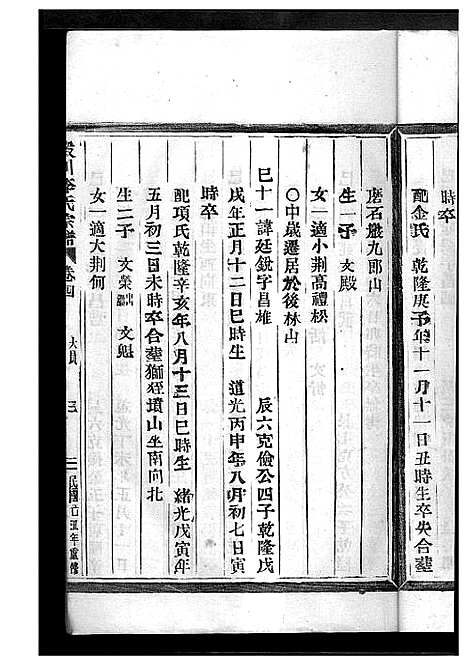 時卒
配金氏 乾隆庚子年十一月十一日丑時生卒失合塟
磨石塅九郎山
生一子 文殿
女一適小荆高禮松
○中歲遷居於後林山
巳十一諱廷銳字昌雄 辰六克儉公四子乾隆戊
戌年正月十二日巳時生 道光丙申年八月初七日寅
時卒
配項氏乾隆辛亥年八月十三日巳時生 緒光戊寅年
五月初三日未時卒合塟獅墳山坐南向北
生二子 文榮 文魁
女一適大荆何
川李氏宗譜 卷四
三
民國 丑年重修